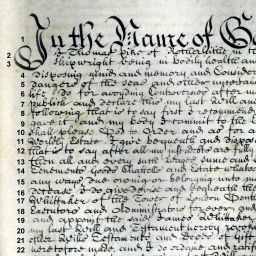 1 In the Name of G
2 I Thomas Pike of Rotherhithe in t
3 Shipwright being in bodily health an
4 disposing mind and memory and Consider
5 dangers of the seas and other uncertain
6 life Do for avoyding Controversies after m
7 publish and declare this my last Will an
8 following that is to say first I recommend
9 gave it and my Body I commit to the E
10 shall please God to Order and as for a
11 Worldly Estate I give bequeath and dispos
12 that is to say after all my just debts are
13 then all and every such Wages summe and
14 Tenements Goods Chattells and Estate whatsoe
15 any ways due owing or belonging unto m
16 decease I do give devise and bequeath the
17 Whittaker of the Tower of London Gent
18 Executors and Administrators
19 and appoint the said James Whittaker
20 my last Will and Testament hereby revo
21 other Wills Testaments and Deeds of Gift
22 heretofore made and I do ordaine and ratif